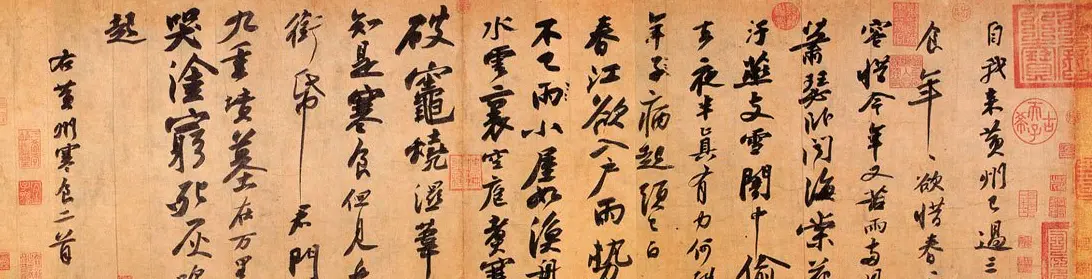 自我来黄州已過三
食年〻欲惜春
容惜今年又苦雨兩
蕭瑟卧聞海棠花
汙燕支雪闇中偷
去夜半真有力何殊
年子病起須已白
春江欲入戶雨勢
不已雨小屋如漁舟
水雲裏空庖煮寒
破竈燒濕葦
知是寒食但見烏
銜帋君門
九重墳墓在万里
哭塗窮死灰吹
起
右黄州寒食二首